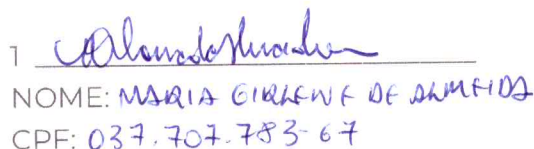 1
NOME: MARIA GIRLENE DE ALMEIDA
CPF: 037.707.783-67